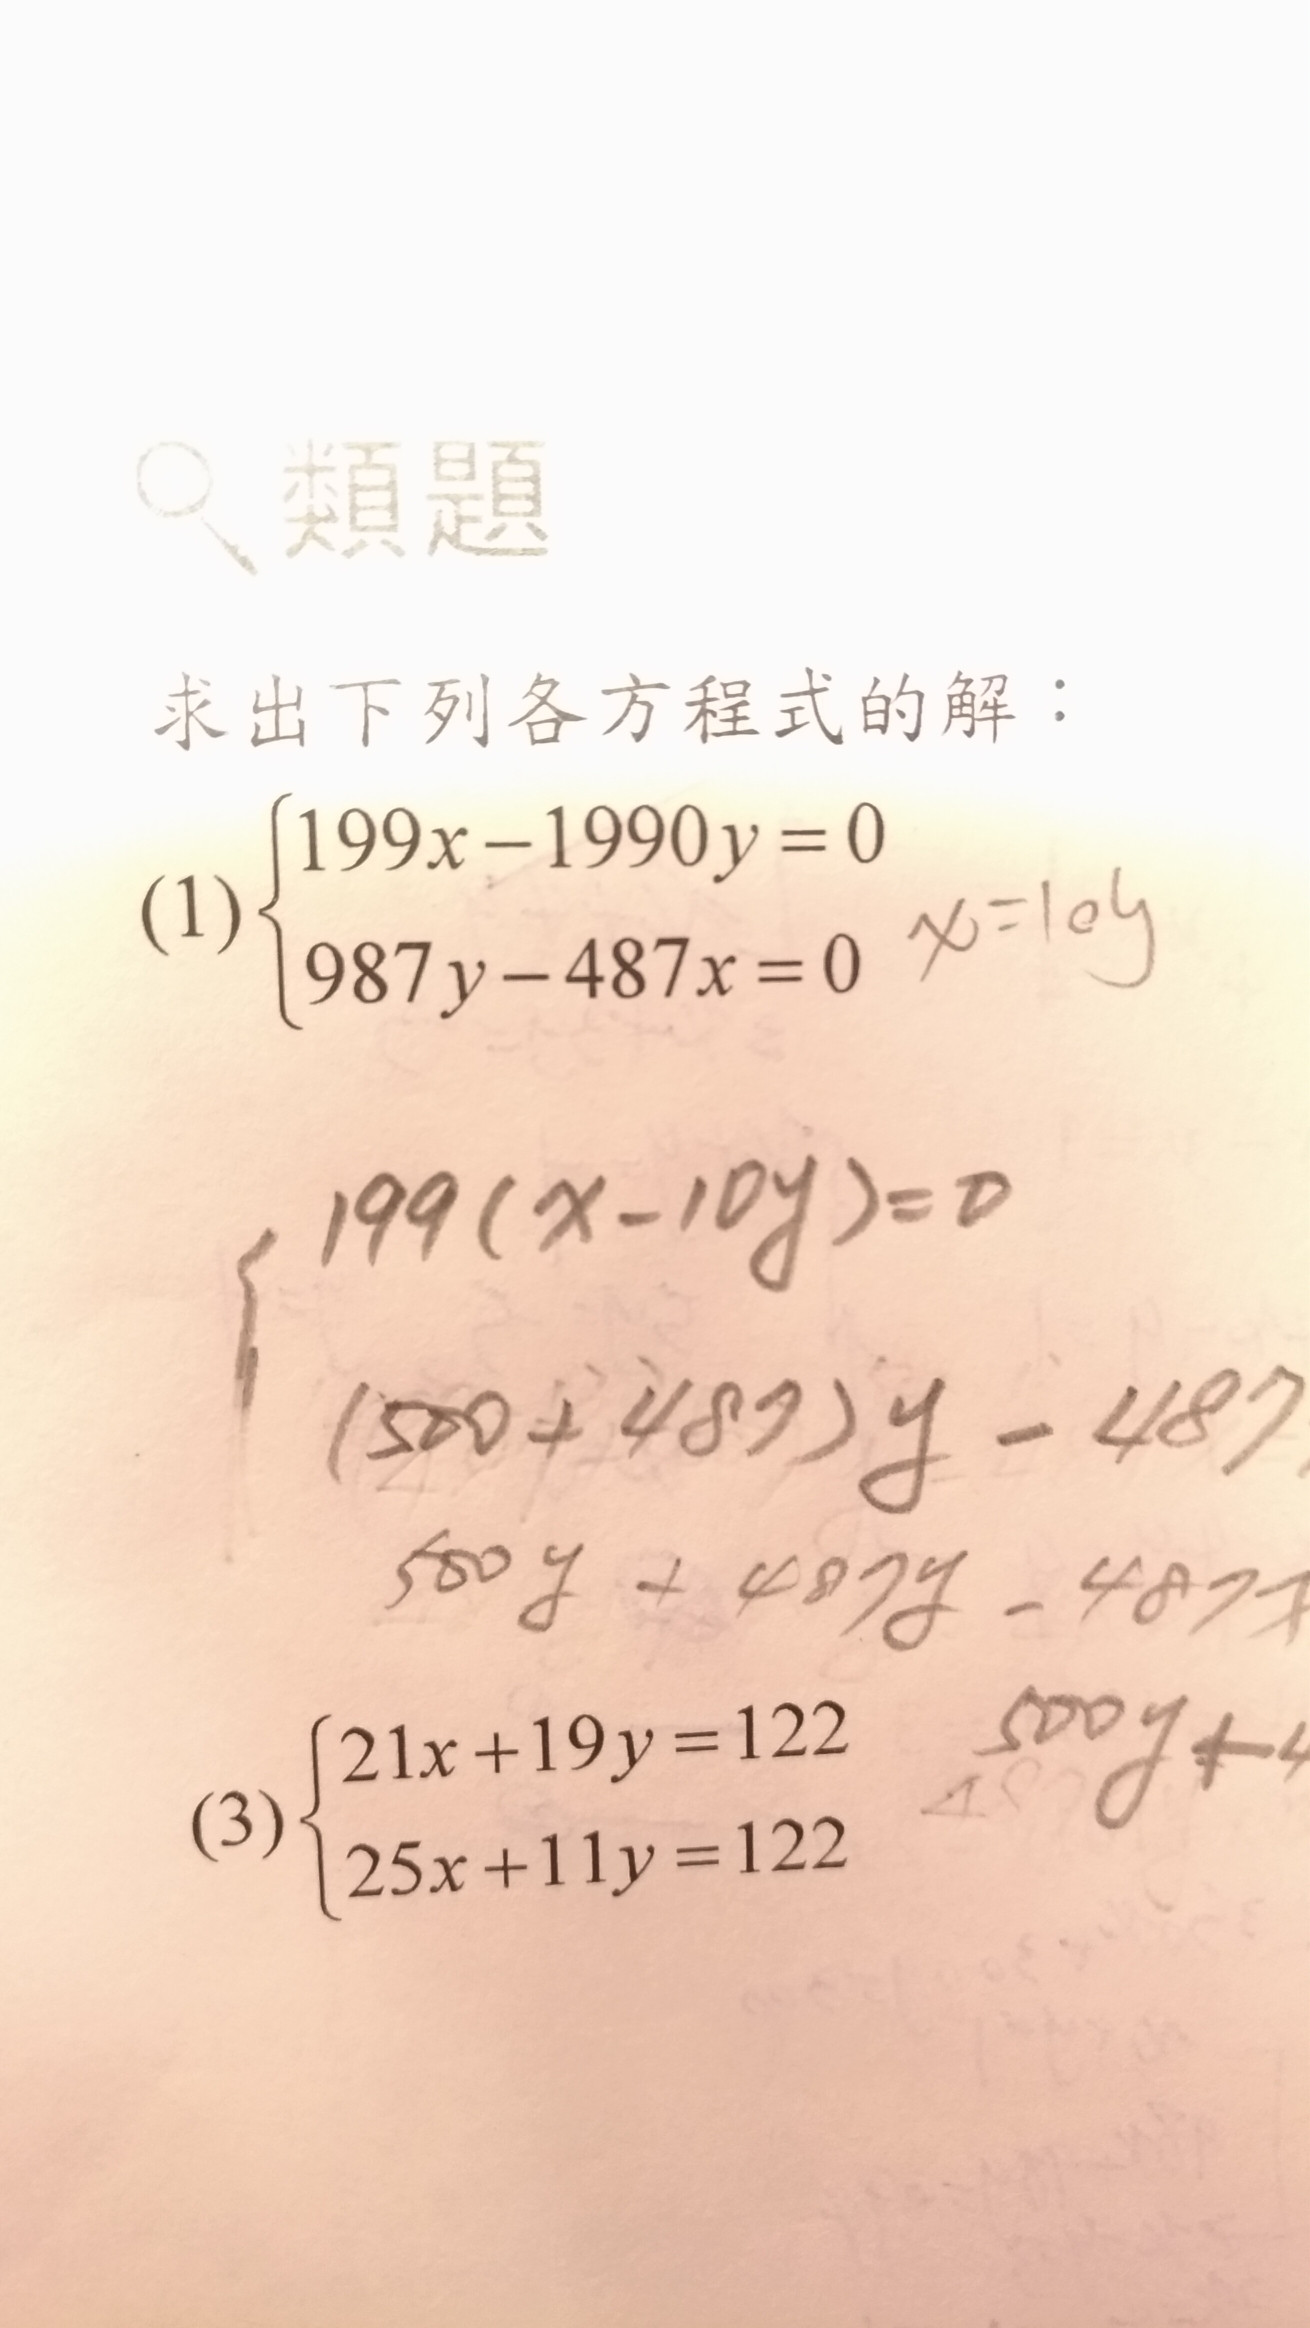 類題
求出下列各方程式的解：
(1) {199x－1990y＝0
987y－487x＝0
x=10y
199(x-10y)=0
(500+487)y-487
500y+487y-487x
500y+4
(3) {21x＋19y＝122
25x＋11y＝122